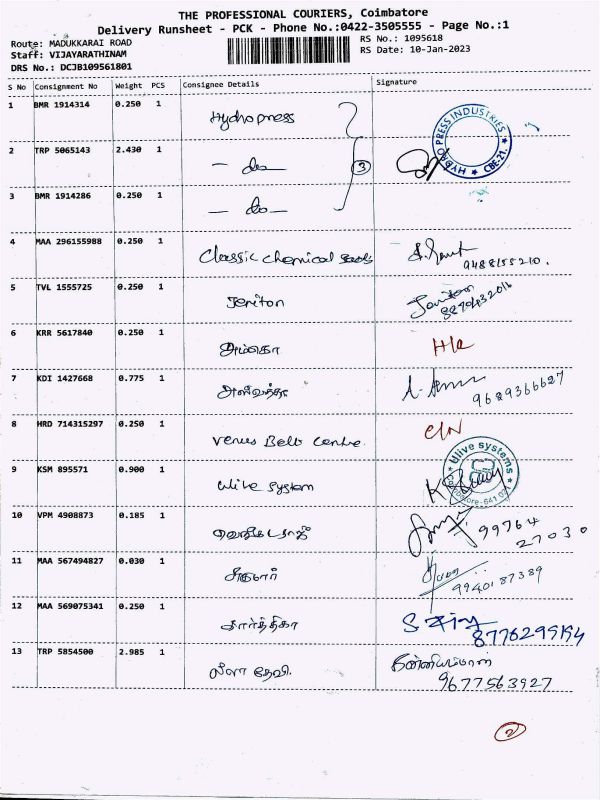 THE PROFESSIONAL COURIERS, Coimbatore
Delivery Runsheet - PCK - Phone No.:0422-3505555 - Page No.:1
Route: MADUKKARAI ROAD
RS No.: 1095618
Staff: VIJAYARATHINAM
RS Date: 10-Jan-2023
DRS No.: DCJB109561801
S No Consignment No Weight PCS Consignee Details Signature
1 BMR 1914314 0.250 1 Hydropress
HYDRO PRESS INDUSTRIES ★ CBE-21. ★
2 TRP 5065143 2.430 1 - do - 3
3 BMR 1914286 0.250 1 - do -
4 MAA 296155988 0.250 1 Classic Chemical
9488155210.
5 TVL 1555725 0.250 1 Jeniton
6 KRR 5617840 0.250 1
7 KDI 1427668 0.775 1
9689366627
8 HRD 714315297 0.250 1 Venus Belt Centre.
9 KSM 895571 0.900 1 Ulive System
Ulive systems
Coimbatore-641 021
10 VPM 4908873 0.185 1
99764
27030
11 MAA 567494827 0.030 1
9940187389
12 MAA 569075341 0.250 1 கார்த்திகா
13 TRP 5854500 2.985 1 லீலா தேவி.
9677563927
2